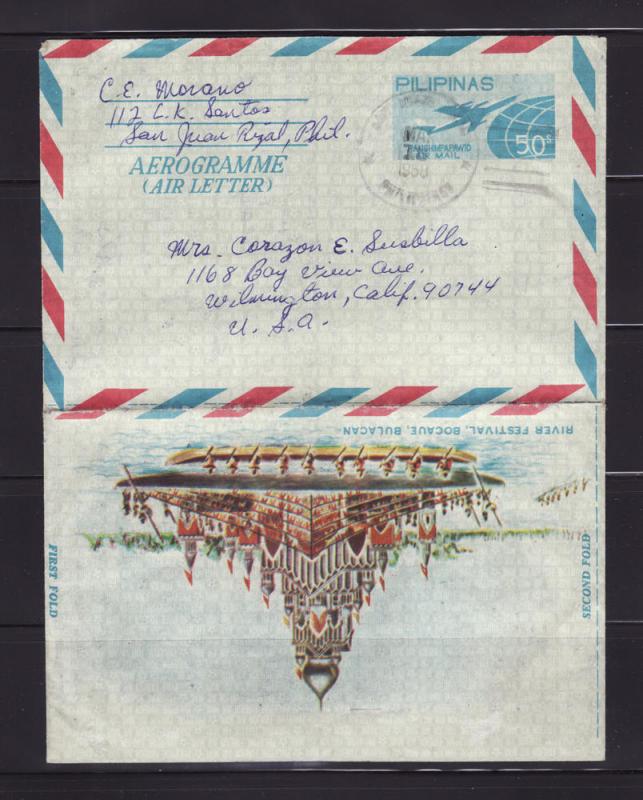 C. E. Morano
112 L.K. Santos
San Juan Rizal, Phil.
AEROGRAMME
(AIR LETTER)
PILIPINAS
PANGHIMPAPAWID
AIR MAIL
50s
MA
1980
Mrs. Corazon E. Susbilla
1168 Bay View Ave.
Wilmington, Calif. 90744
U. S. A.
RIVER FESTIVAL, BOCAUE, BULACAN
FIRST FOLD
SECOND FOLD